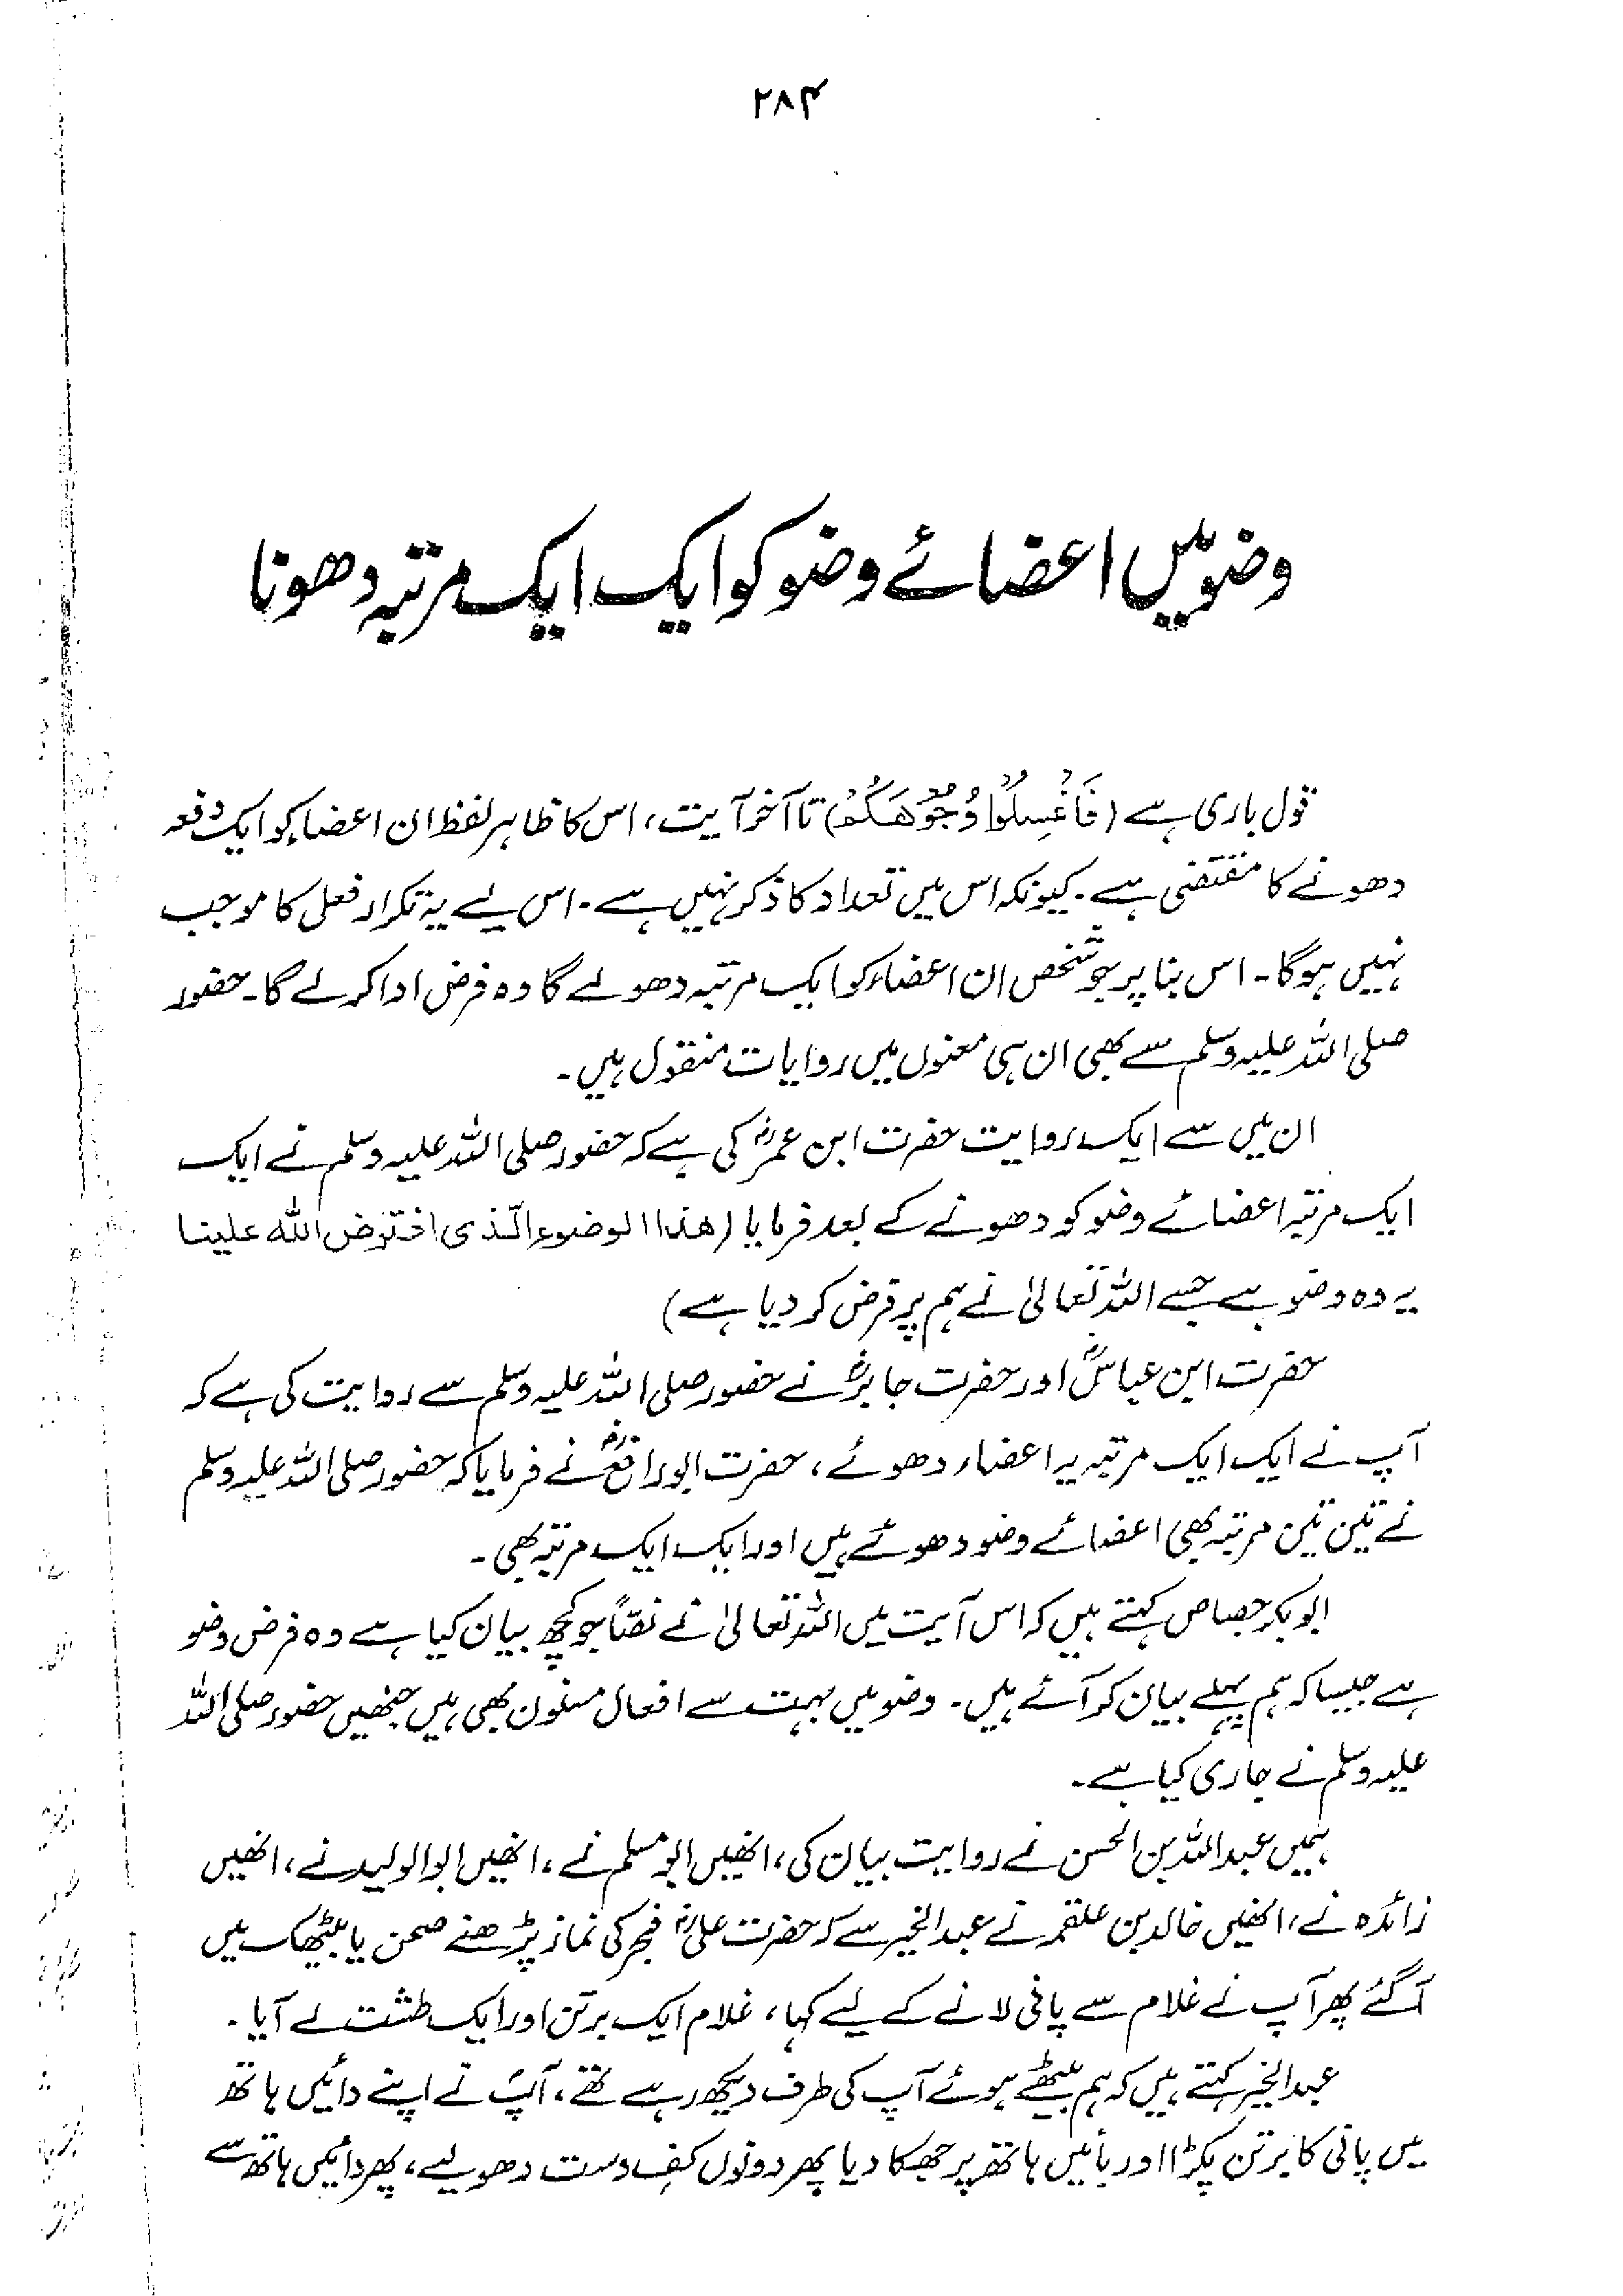 ۲۸۴
وضو میں اعضائے وضو کو ایک ایک مرتبہ دھونا
قول باری ہے (فَاغْسِلُوْا وُجُوْهَكُمْ) تا آخر آیت، اس کا ظاہر لفظ ان اعضاء کو ایک دفعہ
دھونے کا مقتضی ہے۔ کیونکہ اس میں تعداد کا ذکر نہیں ہے۔ اس لیے یہ تکرار فعل کا موجب
نہیں ہوگا۔ اس بنا پر جو شخص ان اعضاء کو ایک مرتبہ دھولے گا وہ فرض ادا کر لے گا۔ حضور
صلی اللہ علیہ وسلم سے بھی ان ہی معنوں میں روایات منقول ہیں۔
ان میں سے ایک روایت حضرت ابن عمرؓ کی ہے کہ حضور صلی اللہ علیہ وسلم نے ایک
ایک مرتبہ اعضائے وضو کو دھونے کے بعد فرمایا (هذا الوضوء الّذی افترض الله علینا
یہ وہ وضو ہے جسے اللہ تعالیٰ نے ہم پر فرض کر دیا ہے)
حضرت ابن عباسؓ اور حضرت جابرؓ نے حضور صلی اللہ علیہ وسلم سے روایت کی ہے کہ
آپ نے ایک ایک مرتبہ یہ اعضاء دھوئے، حضرت ابورافعؓ نے فرمایا کہ حضور صلی اللہ علیہ وسلم
نے تین تین مرتبہ بھی اعضائے وضو دھوئے ہیں اور ایک ایک مرتبہ بھی۔
ابوبکر جصاص کہتے ہیں کہ اس آیت میں اللہ تعالیٰ نے نصّاً جو کچھ بیان کیا ہے وہ فرض وضو
ہے جیسا کہ ہم پہلے بیان کر آئے ہیں۔ وضو میں بہت سے افعال مسنون بھی ہیں جنھیں حضور صلی اللہ
علیہ وسلم نے جاری کیا ہے۔
ہمیں عبداللہ بن الحسن نے روایت بیان کی، انھیں ابو مسلم نے، انھیں ابوالولید نے، انھیں
زائدہ نے، انھیں خالد بن علقمہ نے عبدالخیر سے کہ حضرت علیؓ فجر کی نماز پڑھنے صحن یا بیٹھک میں
آگئے پھر آپ نے غلام سے پانی لانے کے لیے کہا، غلام ایک برتن اور ایک طشت لے آیا۔
عبدالخیر کہتے ہیں کہ ہم بیٹھے ہوئے آپ کی طرف دیکھ رہے تھے، آپؓ نے اپنے دائیں ہاتھ
میں پانی کا برتن پکڑا اور بائیں ہاتھ پر جھکا دیا پھر دونوں کف دست دھو لیے، پھر دائیں ہاتھ سے